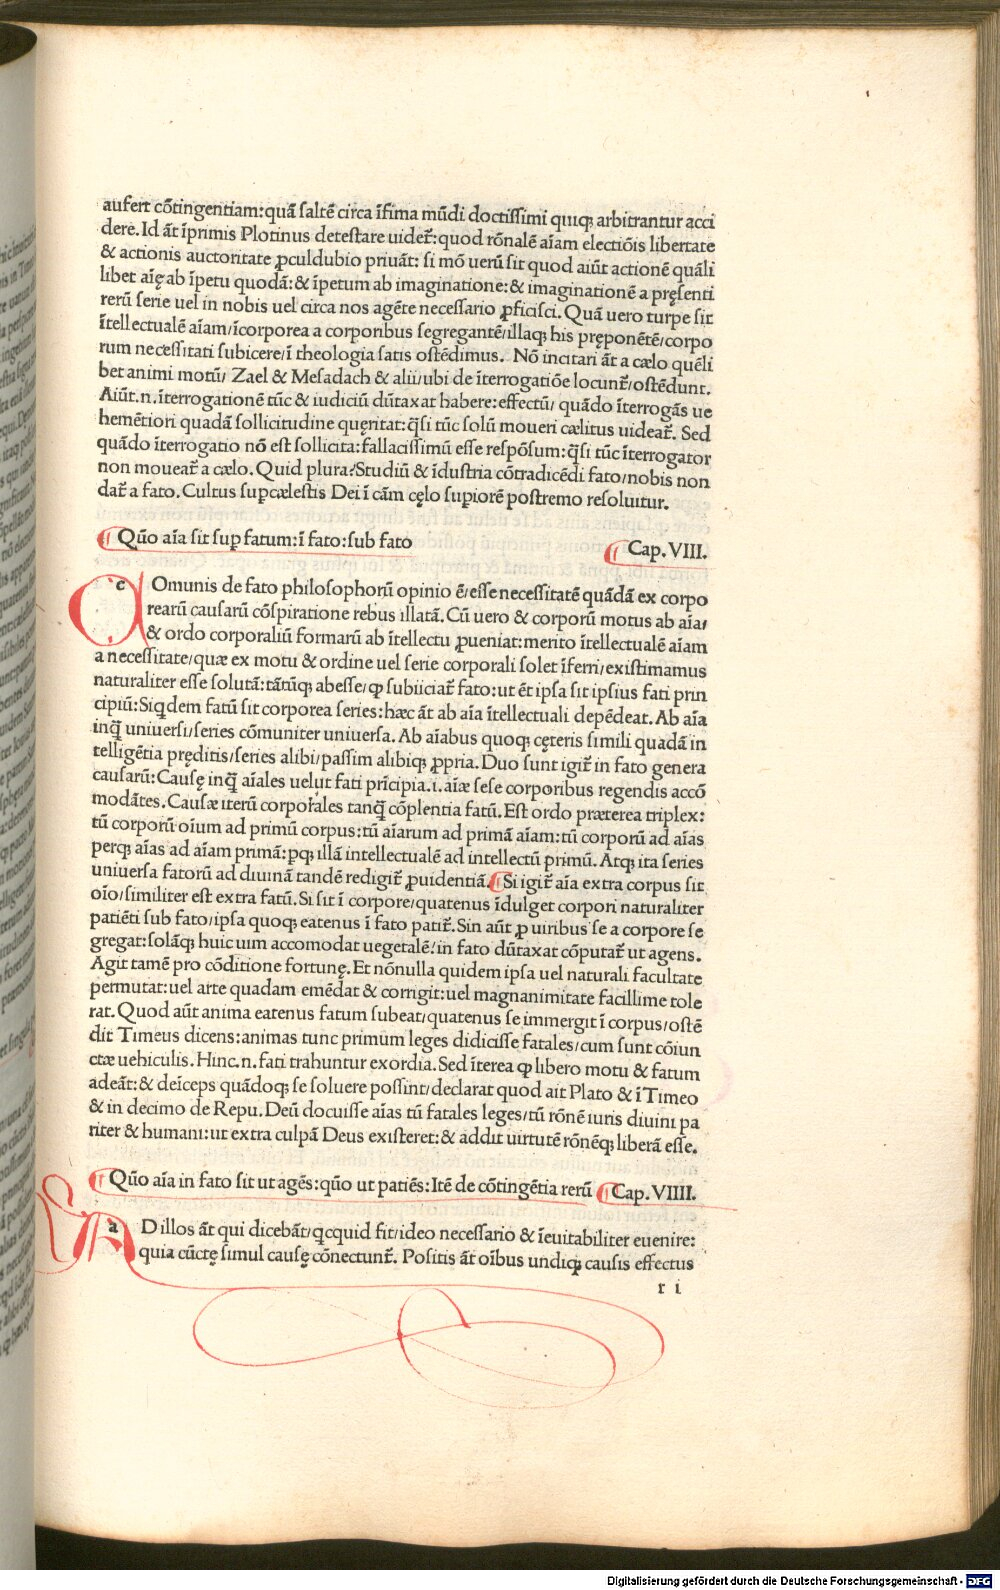 aufert cōtingentiam:quā ſaltē circa īfima mūdi doctiſſimi quiqꝫ arbitrantur acci
dere.Id āt īprimis Plotinus deteſtare uideꝶ:quod rōnalē aīam electiōis libertate
& actionis auctoritate ꝓculdubio priuāt: ſi mō uerū ſit quod aiūt actionē quāli
libet aīę ab īpetu quodā:& īpetum ab imaginatione:& imaginationē a pręſenti
rerū ſerie uel in nobis uel circa nos agēte neceſſario ꝓficiſci. Quā uero turpe ſit
ītellectualē aīam/īcorporea a corporibus ſegregantē/illaqꝫ his pręponētē/corpo
rum neceſſitati ſubicere/ī theologia ſatis oſtēdimus. Nō incitari āt a cælo quēli
bet animi motū/ Zael & Meſadach & alii/ubi de īterrogatiōe locunꝶ/oſtēdunt.
Aiūt.n.īterrogationē tūc & iudiciū dūtaxat habere:effectū/ quādo īterrogās ue
hemētiori quadā ſollicitudine quęritat:q̄ſi tūc ſolū moueri cælitus uideaꝶ. Sed
quādo īterrogatio nō eſt ſollicita:fallaciſſimū eſſe reſpōſum:q̄ſi tūc īterrogator
non moueaꝶ a cælo. Quid plura?Studiū & īduſtria cōtradicēdi fato/nobis non
daꝶ a fato. Cultus ſupcæleſtis Dei ī cām cęlo ſupiorē poſtremo reſoluitur.
¶ Quō aīa ſit ſup fatum:ī fato:ſub fato ¶ Cap. VIII.
c Omunis de fato philoſophorū opinio ē/eſſe neceſſitatē quādā ex corpo
rearū cauſarū cōſpiratione rebus illatā. Cū uero & corporū motus ab aīa/
& ordo corporaliū formarū ab ītellectu ꝓueniat:merito ītellectualē aīam
a neceſſitate/quæ ex motu & ordine uel ſerie corporali ſolet īferri/exiſtimamus
naturaliter eſſe ſolutā:tātūqꝫ abeſſe/ꝙ ſubiiciaꝶ fato:ut ēt ipſa ſit ipſius fati prin
cipiū:Siqdem fatū ſit corporea ſeries:hæc āt ab aīa ītellectuali depēdeat. Ab aīa
inq̄ uniuerſi/ſeries cōmuniter uniuerſa. Ab aīabus quoqꝫ cęteris ſimili quadā in
telligētia pręditis/ſeries alibi/paſſim alibiqꝫ ꝓpria. Duo ſunt igiꝶ in fato genera
cauſarū: Cauſę inq̄ aīales uelut fati prīcipia.i.aīæ ſeſe corporibus regendis accō
modātes. Cauſæ iterū corporales tanq̄ cōplentia fatū. Eſt ordo præterea triplex:
tū corporū oīum ad primū corpus:tū aīarum ad primā aīam:tū corporū ad aīas
perqꝫ aīas ad aīam primā:pqꝫ illā intellectualē ad intellectū primū. Atqꝫ ita ſeries
uniuerſa fatorū ad diuinā tandē redigiꝶ ꝓuidentiā.¶Si igiꝶ aīa extra corpus ſit
oīo/ſimiliter eſt extra fatū. Si ſit ī corpore/quatenus īdulget corpori naturaliter
patiēti ſub fato/ipſa quoqꝫ eatenus ī fato patiꝶ. Sin aūt ꝓ uiribus ſe a corpore ſe
gregat:ſolāqꝫ huic uim accomodat uegetalē/in fato dūtaxat cōputaꝶ ut agens.
Agit tamē pro cōditione fortunę. Et nōnulla quidem ipſa uel naturali facultate
permutat:uel arte quadam emēdat & corrigit:uel magnanimitate facillime tole
rat. Quod aūt anima eatenus fatum ſubeat/quatenus ſe immergit ī corpus/oſtē
dit Timeus dicens:animas tunc primum leges didiciſſe fatales/cum ſunt cōiun
ctæ uehiculis. Hinc.n.fati trahuntur exordia. Sed īterea ꝙ libero motu & fatum
adeāt:& deīceps quādoqꝫ ſe ſoluere poſſint/declarat quod ait Plato & ī Timeo
& in decimo de Repu. Deū docuiſſe aīas tū fatales leges/tū rōnē iuris diuini pa
riter & humani:ut extra culpā Deus exiſteret:& addit uirtutē rōnēqꝫ liberā eſſe.
¶ Quō aīa in fato ſit ut agēs:quō ut patiēs:Itē de cōtingētia rerū ¶Cap. VIIII.
a D illos āt qui dicebāt/qcquid fit/ideo neceſſario & īeuitabiliter euenire:
quia cūctę ſimul cauſę cōnectunꝶ. Poſitis āt oībus undiqꝫ cauſis effectus
r i
Digitalisierung gefördert durch die Deutsche Forschungsgemeinschaft - DFG